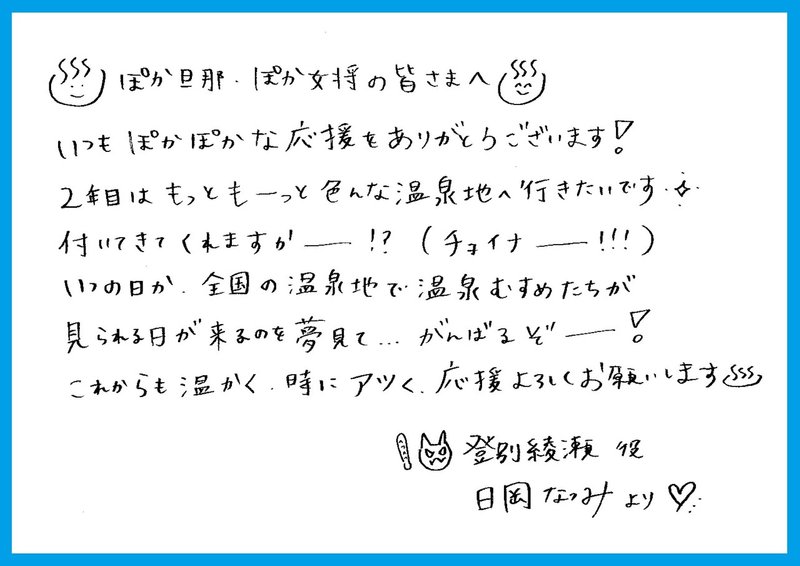 ぽか旦那、ぽか女将の皆さまへ
いつもぽかぽかな応援をありがとうございます!
2年目はもっともーっと色んな温泉地へ行きたいです
付いてきてくれますかー!?(チョイナー!!!)
いつの日か、全国の温泉地で温泉むすめたちが
見られる日が来るのを夢見て...がんばるぞー!
これからも温かく、時にアツく、応援よろしくお願いします
登別綾瀬 役
日岡なつみより♡